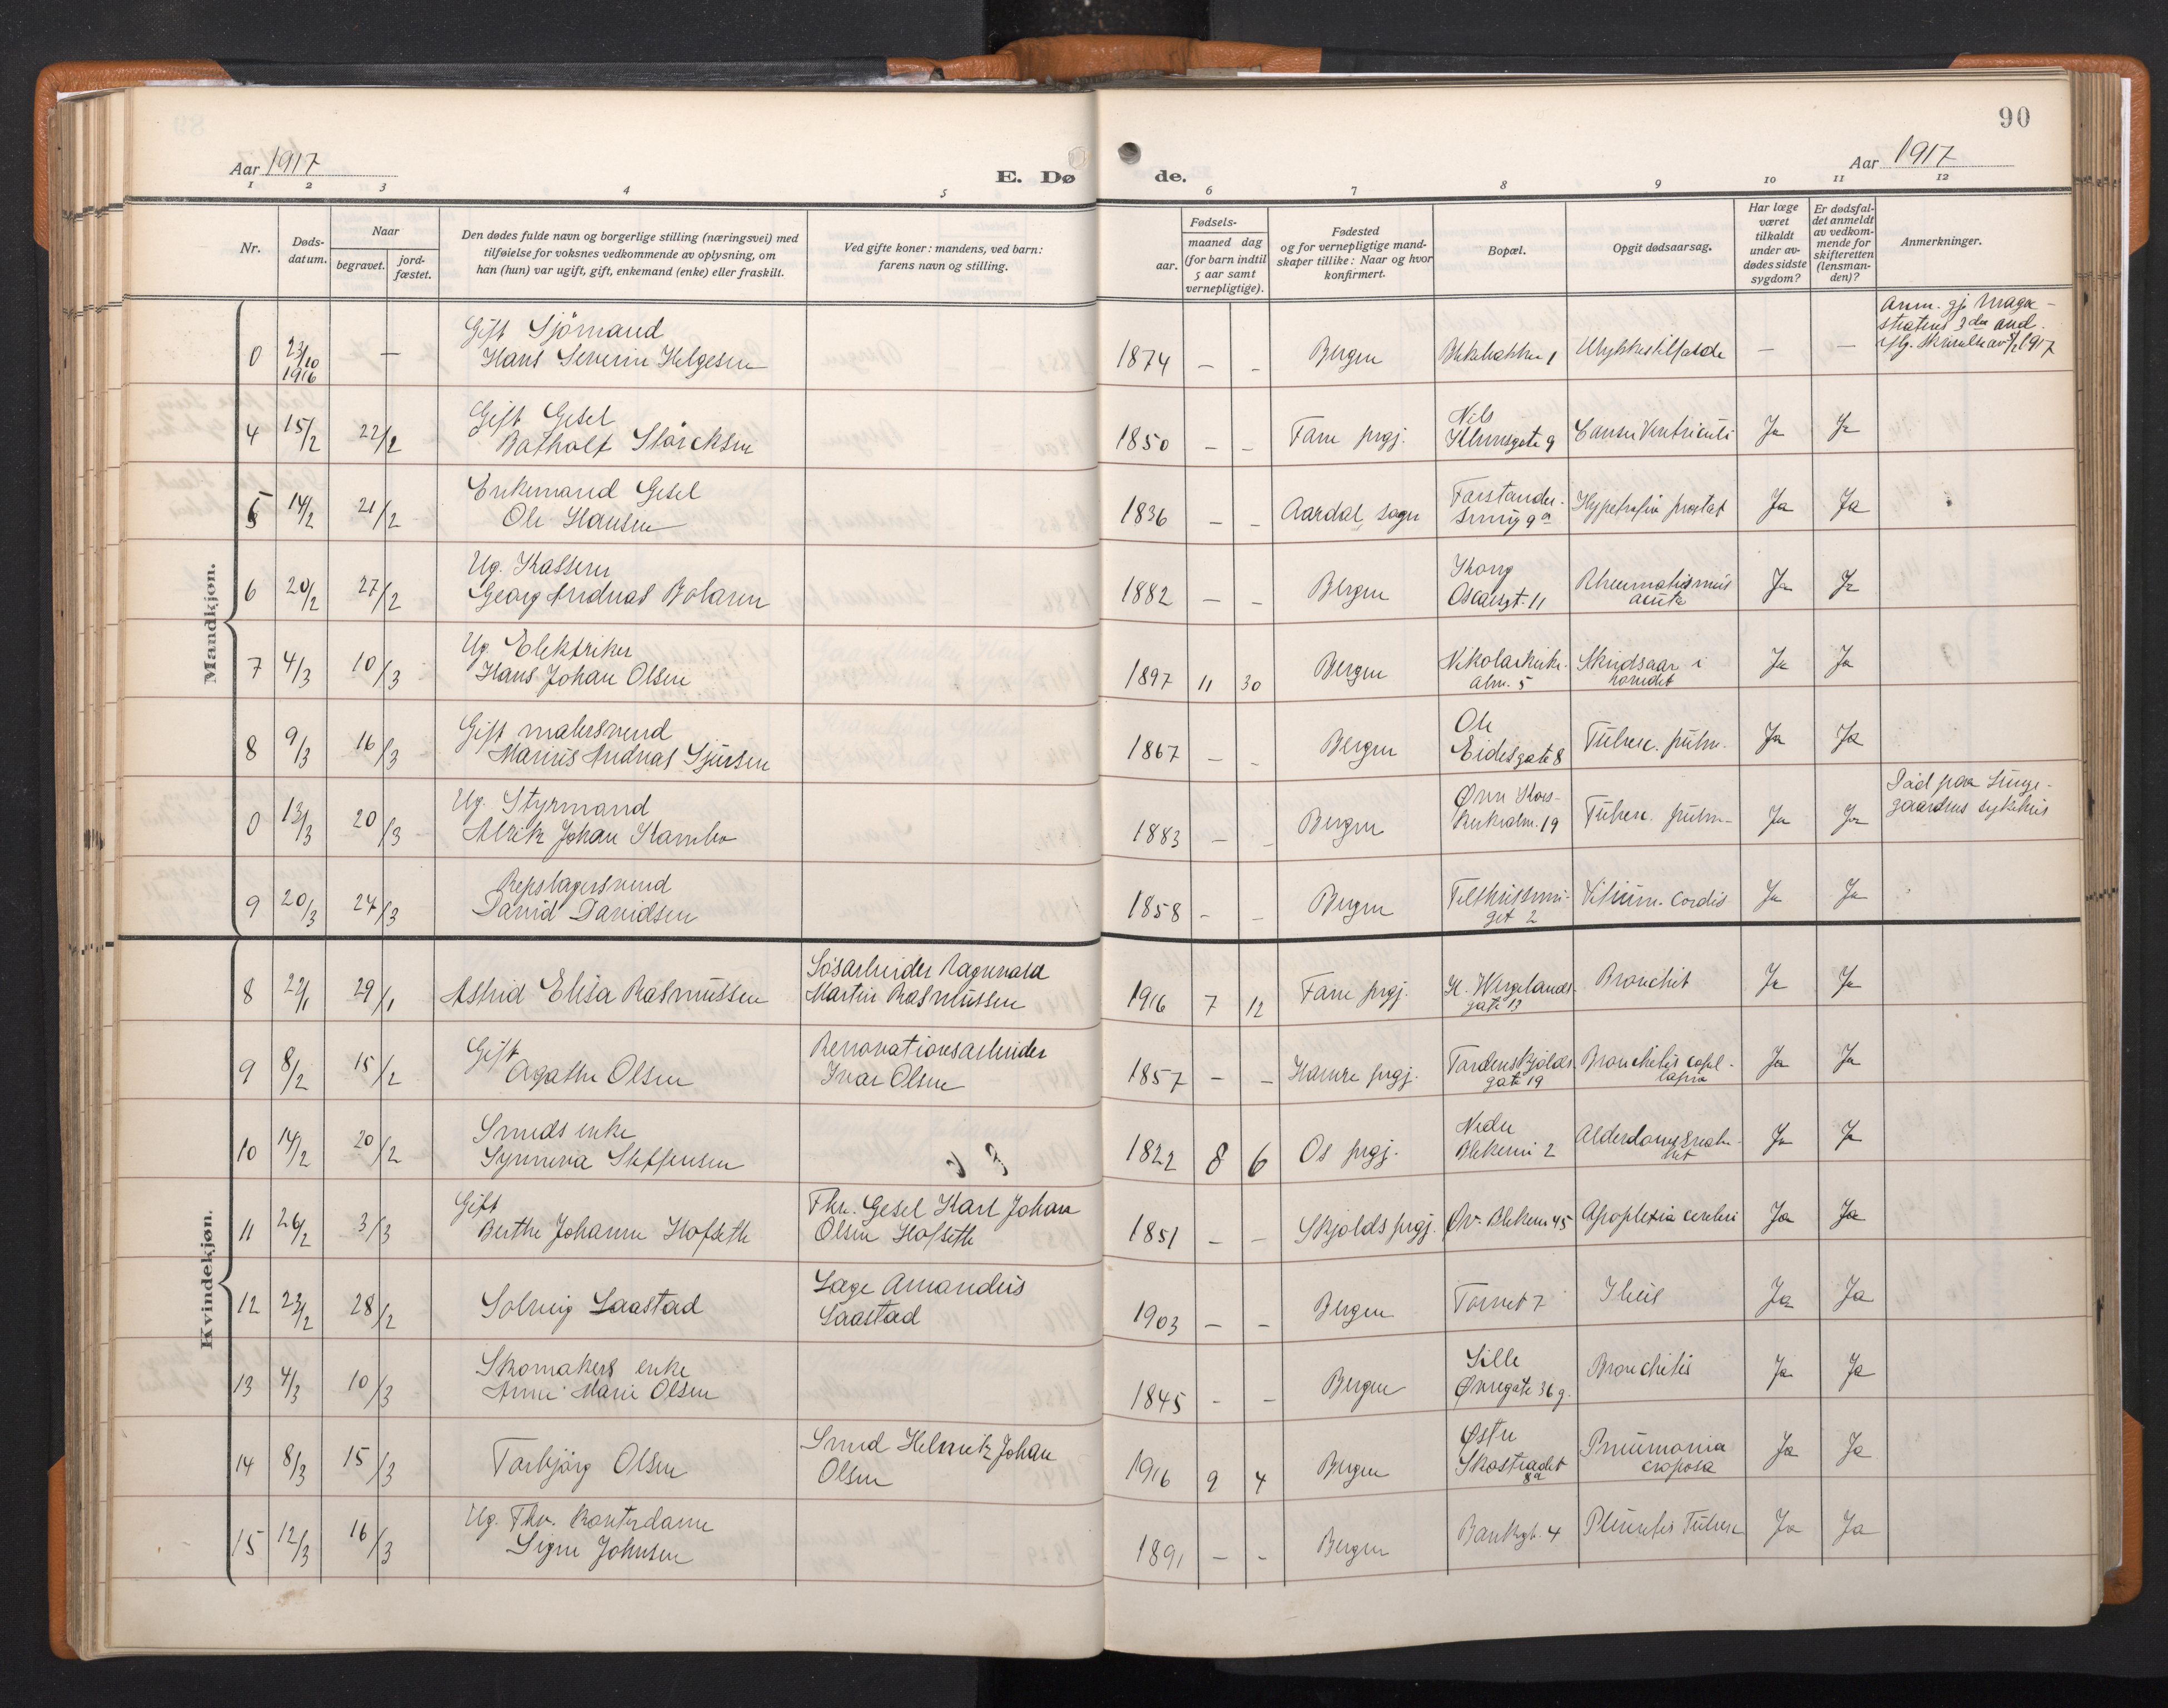 90
Aar 1917
E. Dø
de.
Aar 1917
1 2 3 4 5 6 7 8 9 10 11 12
Nr.
Døds-
datum.
Naar
begravet.
jord-
fæstet.
Den dødes fulde navn og borgerlige stilling (næringsvei) med
tilføielse for voksnes vedkommende av oplysning, om
han (hun) var ugift, gift, enkemand (enke) eller fraskilt.
Ved gifte koner: mandens, ved barn:
farens navn og stilling.
Fødsels-
aar.
maaned dag
(for barn indtil
5 aar samt
vernepligtige).
Fødested
og for vernepligtige mand-
skaper tillike: Naar og hvor
konfirmert.
Bopæl.
Opgit dødsaarsag.
Har læge
været
tilkaldt
under av-
dødes sidste
sygdom?
Er dødsfal-
det anmeldt
av vedkom-
mende for
skifteretten
(lensman-
den)?
Anmerkninger.
Mandkjøn.
0 23/10 1916 —
Gift Sjömand
Hans Severin Helgesen
1874 — — Bergen Blekebakken 1 Ulykkestilfælde — —
Anm. gj. Magi-
stratens 3die avd.
iflg. skrivelse av 1917
4 15/2 22/2
Gift Gesel
Batholf Störcksen
1850 — — Fane prgj.
Nils
Klimsgate 9
Cancer Ventriculi Ja Ja
5 14/2 21/2
Enkemand Gesel
Ole Hansen
1836 — — Aardal sogn
Forstander-
smug 9a
Hypetrofia prostat Ja Ja
6 20/2 27/2
Ug. Kasserer
Georg Andreas Bolaren
1882 — — Bergen
Kong
Oscarsgt. 11
Rheumatismus
acuta
Ja Ja
7 4/3 10/3
Ug. Elektriker
Hans Johan Olsen
1897 11 30 Bergen
Nikolaikirke-
alm. 5
Skudsaar i
hovedet
Ja Ja
8 9/3 16/3
Gift malersvend
Marius Andreas Sjursen
1867 — — Bergen
Ole
Eidesgate 8
Tuberc. pulm. Ja Ja
0 13/3 20/3
Ug. Styrmand
Alrik Johan Kambo
1883 — — Bergen
Øvre Kors-
kirkealm. 19
Tuberc. pulm— Ja Ja
Död paa Lunge-
gaardens sykehus
9 20/3 27/3
Repslagersvend
David Davidsen
1858 — — Bergen
Telthussmu-
get 2
Vitium. Cordis Ja Ja
Kvindekjøn.
8 22/1 29/1
Astrid Elisa Rasmussen
Lösarbeider Ragnvald
Martin Rasmussen
1916 7 12 Fane prgj.
H. Wergelands-
gate 13
Bronchit Ja Ja
9 8/2 15/2
Gift
Agathe Olsen
Renovationsarbeider
Ivar Olsen
1857 — — Hamre prgj.
Tordenskjolds
gate 19
Bronchitis capil-
laris
Ja Ja
10 14/2 20/2
Smeds enke
Synneva Steffensen
1822 8 6 Os prgj.
Nedre
Blekevei 2
Alderdomssvak-
het
Ja Ja
11 26/2 3/3
Gift
Berthe Johanne Hofseth
Fhv. Gesel Karl Johan
Olsen Hofseth
1851 — — Skjolds prgj. Øv. Blekevei 45 Apoplexia cerebri Ja Ja
12 23/2 28/2
Solveig Laastad
Læge Amandus
Laastad
1903 — — Bergen Torvet 7 Ileus Ja Ja
13 4/3 10/3
Skomakers enke
Anne Marie Olsen
1845 — — Bergen
Lille
Øvregate 36 g.
Bronchitis Ja Ja
14 8/3 15/3
Torbjörg Olsen
Smed Helmik Johan
Olsen
1916 9 4 Bergen
Østre
Skostrædet
8a
Pneumonia
croposa
Ja Ja
15 12/3 16/3
Ug. Fhv. Kontordame
Signe Johnsen
1891 — — Bergen Bankgt. 4 Pleuritis Tuberc Ja Ja